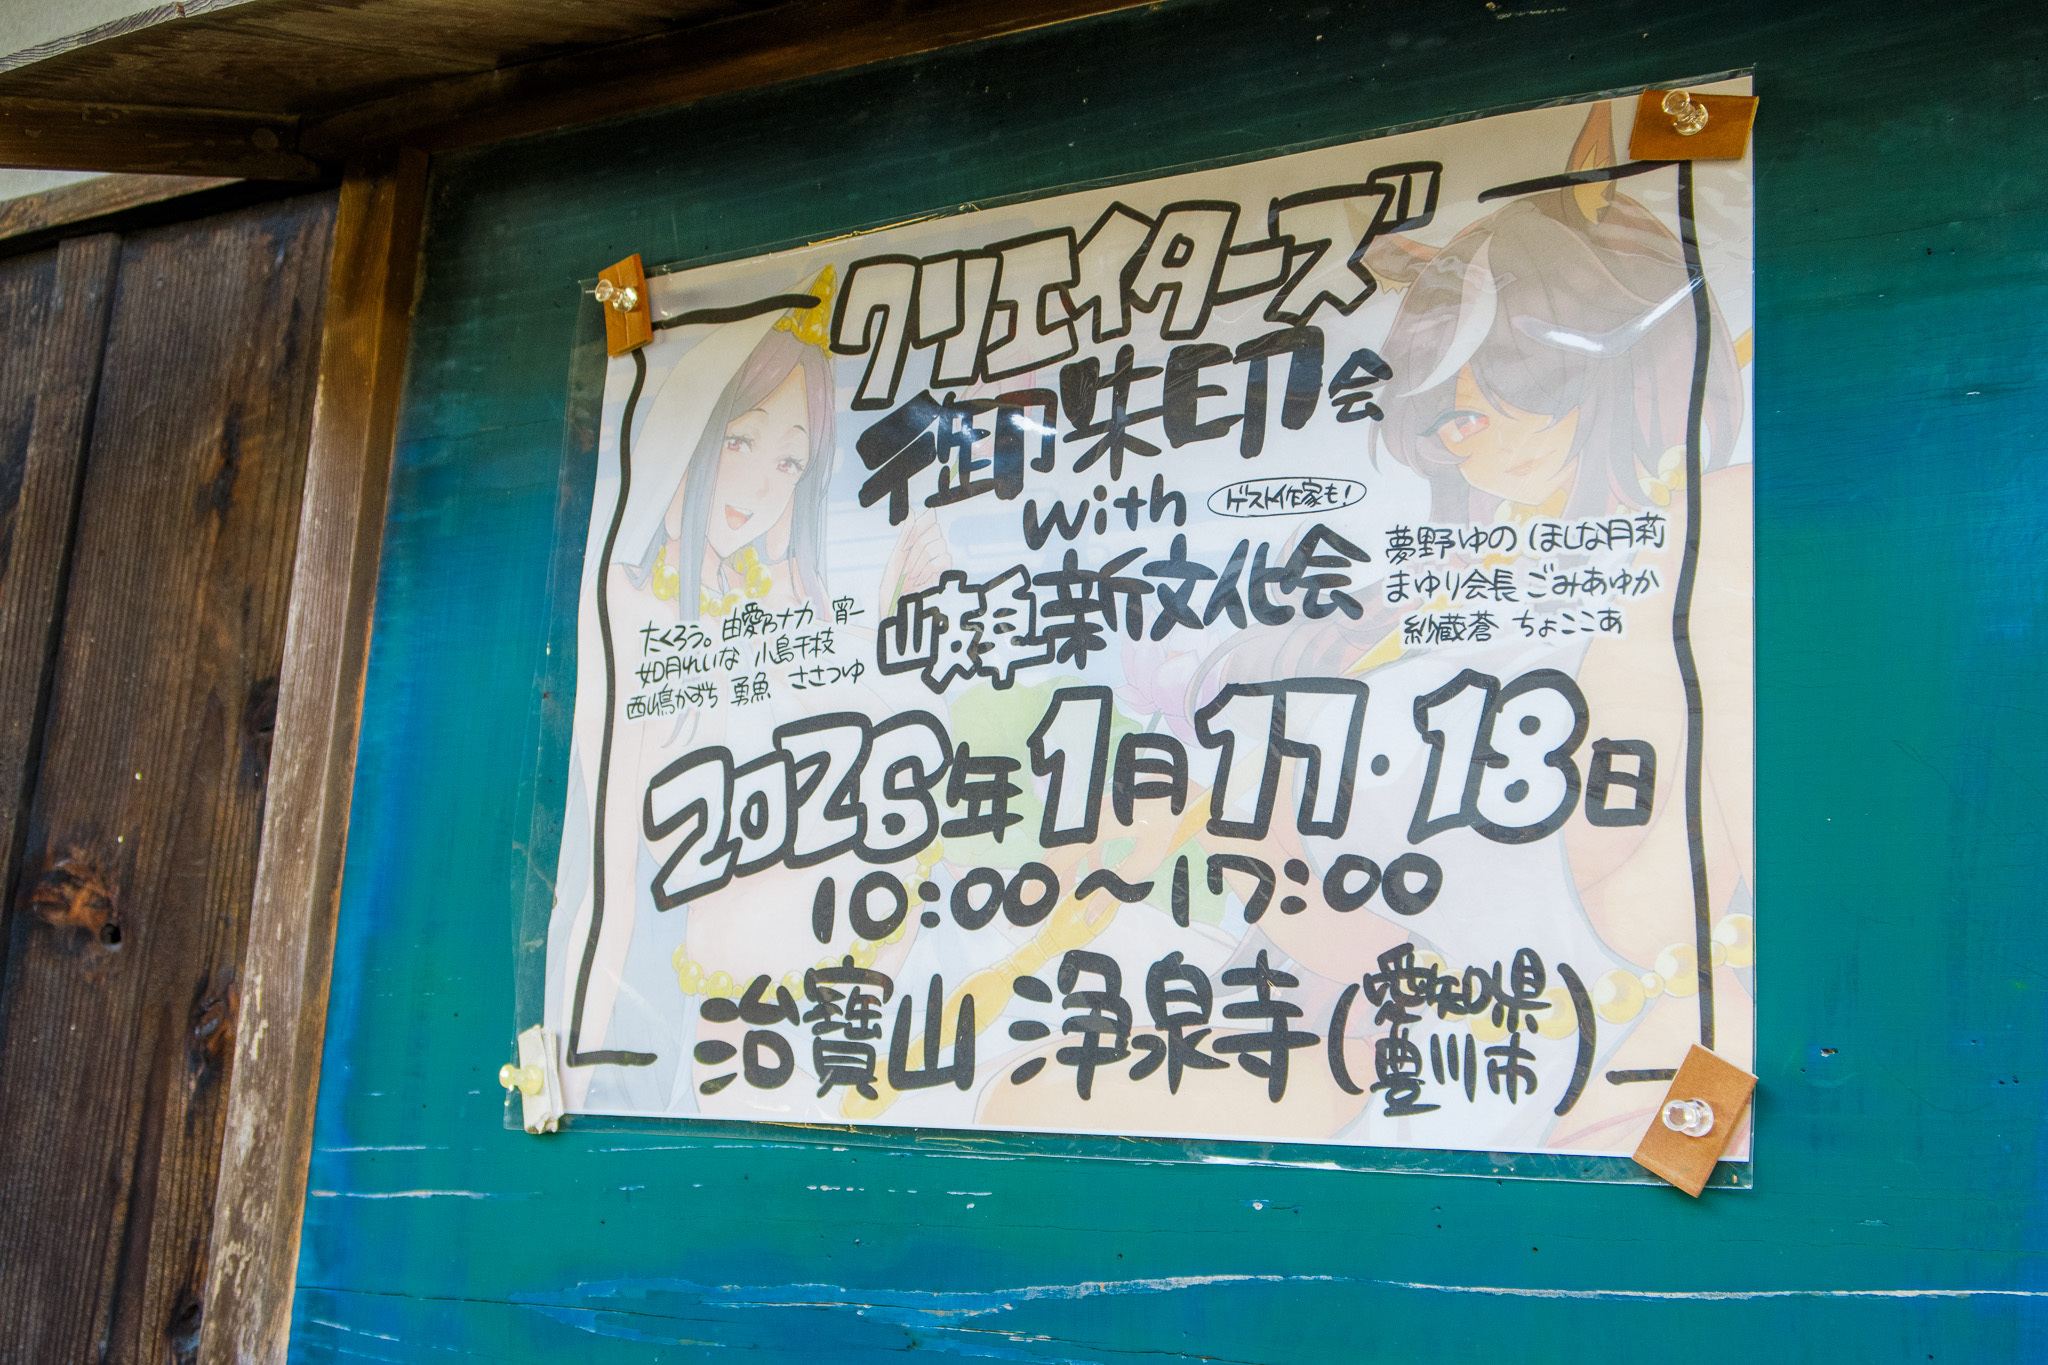 クリエイターズ
御朱印会
with
ゲスト作家も!
新文化会
たくろう。 由愛乃ナカ 宵一
如月れいな 小島千枝
西嶋かずち 勇魚 ささつゆ
夢野ゆの ほしな月莉
まゆり会長 ごみあゆか
紗蔵蒼 ちょここあ
2026年1月17・18日
10:00~17:00
治寶山 浄泉寺(愛知県
豊川市)